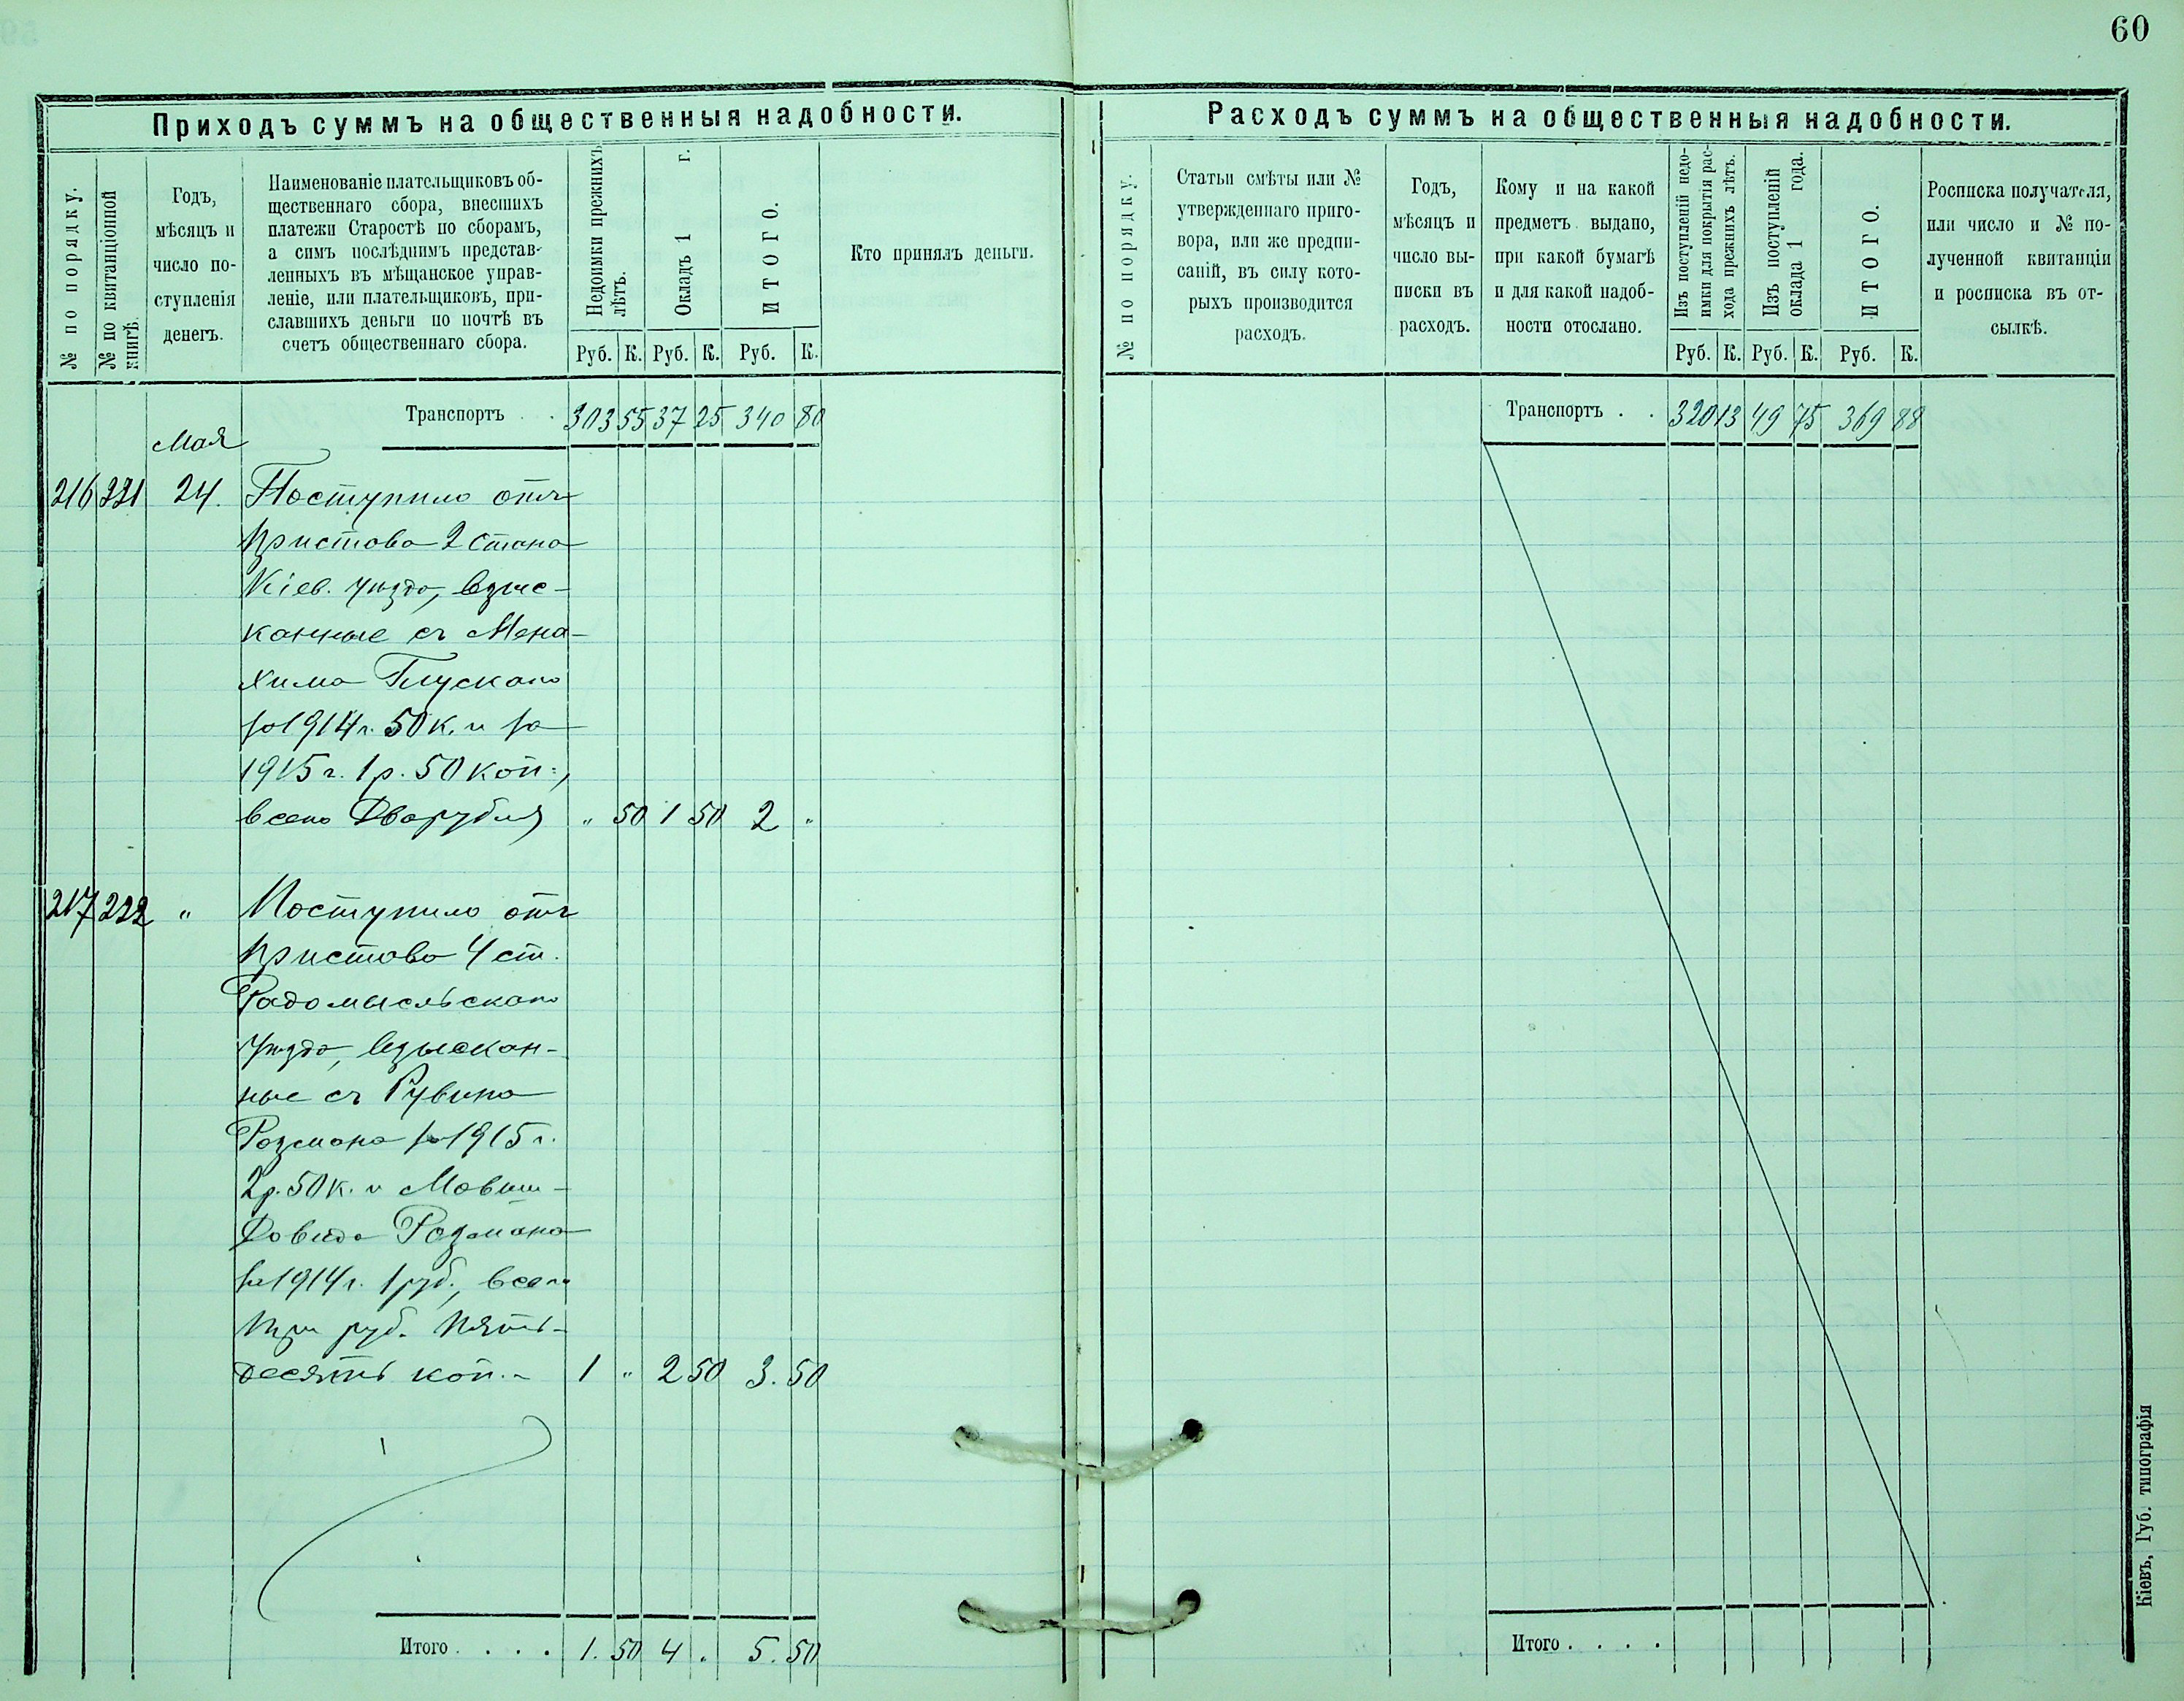 60
Приходъ суммъ на общественныя надобности.
№ по порядку.
№ по квитанціонной
книгѣ.
Годъ,
мѣсяцъ и
число по-
ступленія
денегъ.
Наименованіе плательщиковъ об-
щественнаго сбора, внесшихъ
платежи Старостѣ по сборамъ,
а симъ послѣднимъ представ-
ленныхъ въ мѣщанское управ-
леніе, или плательщиковъ, при-
славшихъ деньги по почтѣ въ
счетъ общественнаго сбора.
Недоимки прежнихъ
лѣтъ.
Окладъ 1 г.
ИТОГО.
Руб. К. Руб. К. Руб. К.
Кто принялъ деньги.
Транспортъ . . 303 55 37 25 340 80
Мая
216 221 24. Поступило отъ
Пристава 2 стана
Кіев. уѣзда, взыс-
канные съ Мена-
хима Глускаго
за 1914 г. 50 к. и за
1915 г. 1 р. 50 коп.,
всего Два рубля " 50 1 50 2 "
217 222 " Поступило отъ
Пристава 4 ст.
Радомысльскаго
уѣзда, взыскан-
ные съ Рувина
Розмана за 1915 г.
2 р. 50 к. и Мовши-
Довида Розмана
за 1914 г. 1 руб., всего
Три руб. пять-
десятъ коп. 1 " 2 50 3. 50
Итого . . . . 1. 50 4 . 5. 50
Расходъ суммъ на общественныя надобности.
№ по порядку.
Статьи смѣты или №
утвержденнаго приго-
вора, или же предпи-
саній, въ силу кото-
рыхъ производится
расходъ.
Годъ,
мѣсяцъ и
число вы-
писки въ
расходъ.
Кому и на какой
предметъ выдано,
при какой бумагѣ
и для какой надоб-
ности отослано.
Изъ поступленій недо-
имки для покрытія рас-
хода прежнихъ лѣтъ.
Изъ поступленій
оклада 1 года.
ИТОГО.
Руб. К. Руб. К. Руб. К.
Росписка получателя,
или число и № по-
лученной квитанціи
и росписка въ от-
сылкѣ.
Транспортъ . . 320 13 49 75 369 88
Итого . . . .
Кіевъ, Губ. типографія